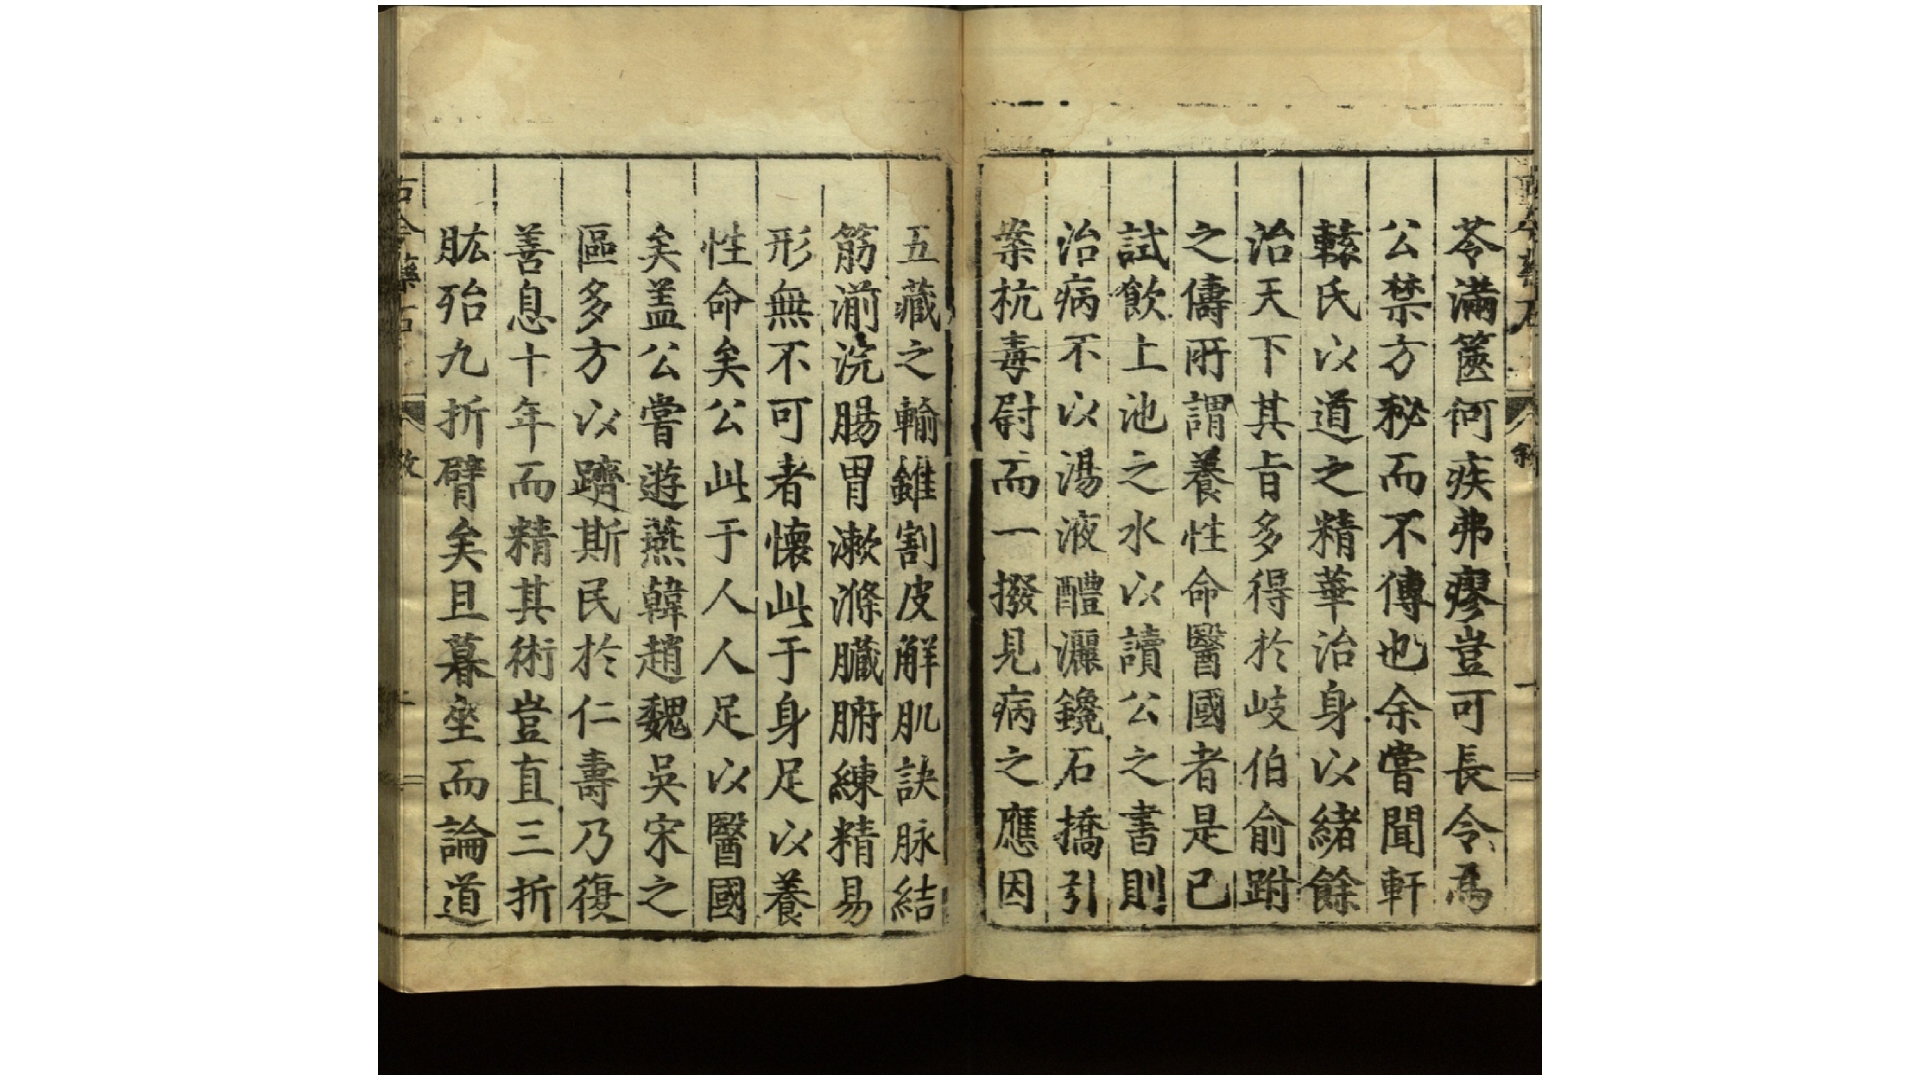 苓滿篋何疾弗瘳豈可長令爲
公禁方秘而不傳也余嘗聞軒
轅氏以道之精華治身以緒餘
治天下其旨多得於岐伯俞跗
之儔所謂養性命醫國者是已
試飲上池之水以讀公之書則
治病不以湯液醴灑鑱石撟引
案杭毒尉而一撥見病之應因
五藏之輸錐割皮解肌訣脉結
筋湔浣腸胃漱滌臟腑練精易
形無不可者懷此于身足以養
性命矣公此于人人足以醫國
矣盖公嘗遊燕韓趙魏吳宋之
區多方以躋斯民於仁壽乃復
善息十年而精其術豈直三折
肱殆九折臂矣且暮坐而論道
古今藥石
敘